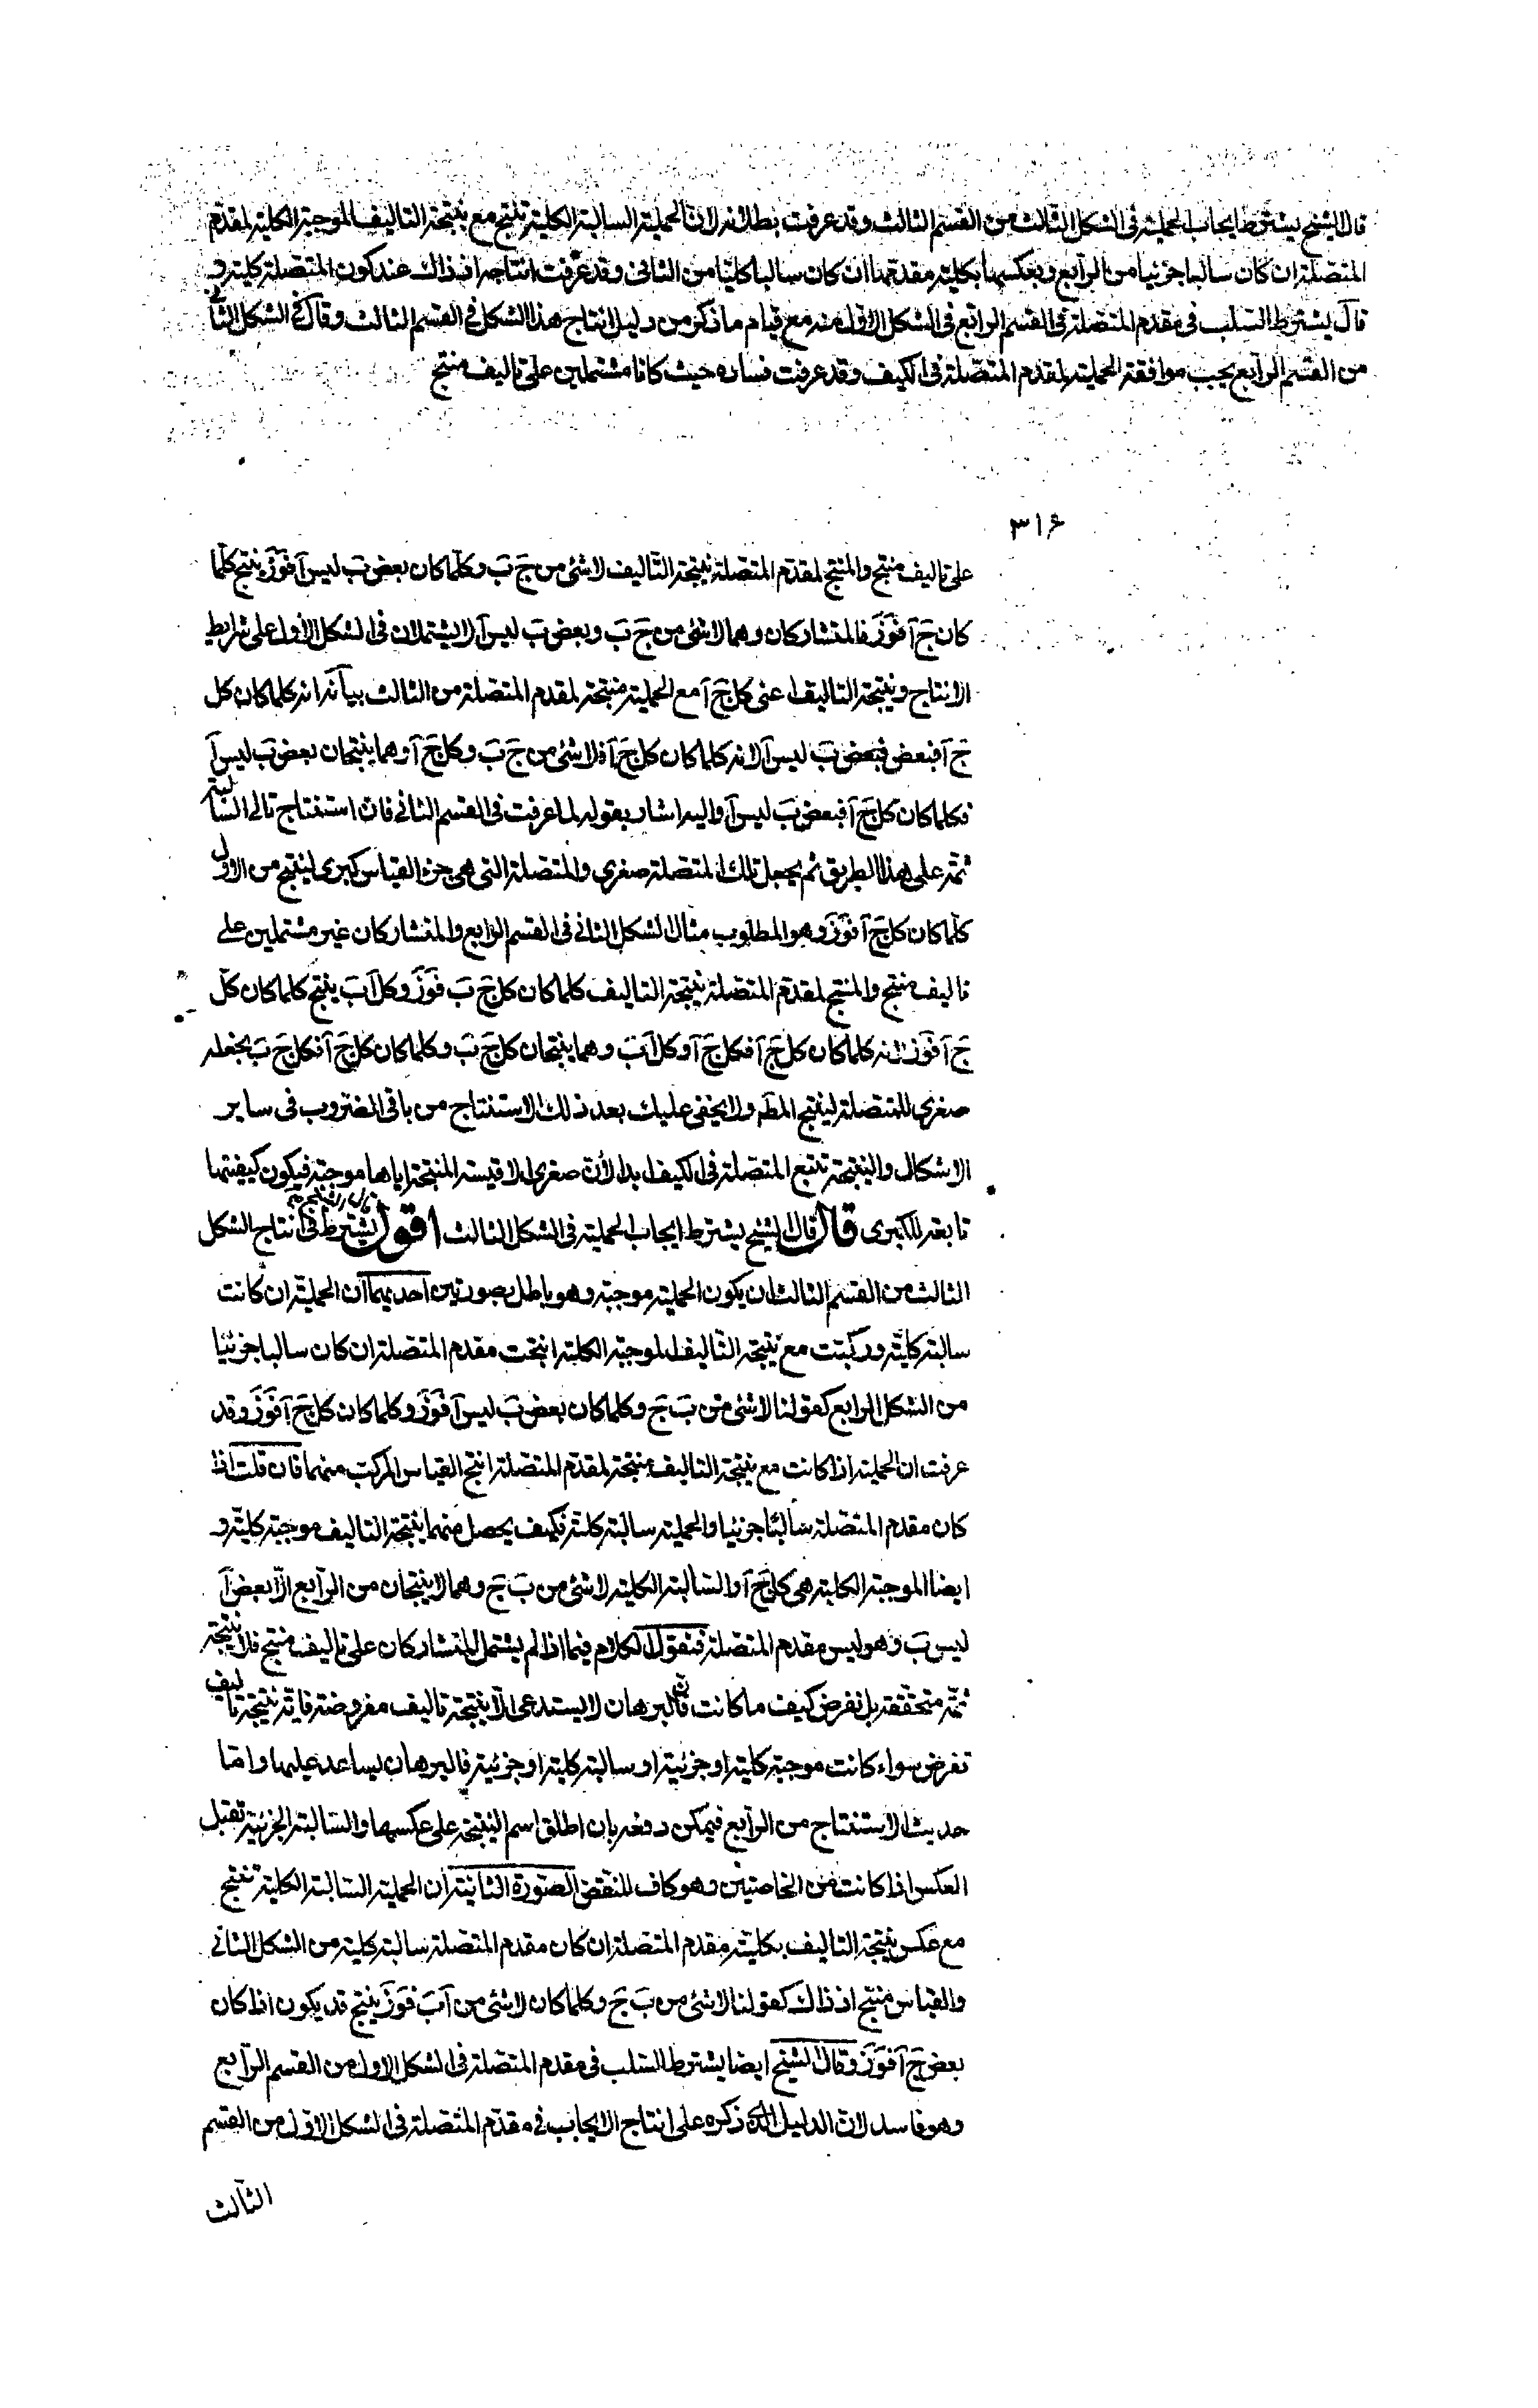 قال الشيخ يشترط ايجاب الحملية فى الشكل الثالث من القسم الثالث وقد عرفت بطلانه لان الحملية السالبة الكلية تنتج مع نتيجة التاليف الموجبة الكلية لمقدم
المتصلة ان كان سالبا جزئيا من الرابع وبعكسها بكلية مقدمها ان كان سالبا كليا من الثانى وقد عرفت انتاجه اذ ذاك عند كون المتصلة كلية و
قال يشترط السلب فى مقدم المتصلة فى القسم الرابع فى الشكل الاول منه مع قيام ما ذكر من دليل انتاج هذا الشكل فى القسم الثالث وقال فى الشكل الثانى
من القسم الرابع يجب موافقة الحملية لمقدم المتصلة فى الكيف وقد عرفت فساده حيث كانا مشتملين على تاليف منتج
٣١۶
على تاليف منتج والمنتج لمقدم المتصلة نتيجة التاليف لا شئ من ج ب وكلما كان بعض ب ليس آ فوز ينتج كلما
كان ج آ فوز فالمتشاركان وهما لا شئ من ج ب وبعض ب ليس آ لا يشتملان فى الشكل الاول على شرايط
الانتاج ونتيجة التاليف اعنى كل ج آ مع الحملية منتجة لمقدم المتصلة من الثالث بيانه انه كلما كان كل
ج آ فبعض فبعض ب ليس آ لانه كلما كان كل ج آ فلا شئ من ج ب وكل ج آ وهما ينتجان بعض ب ليس آ
فكلما كان كل ج آ فبعض ب ليس آ واليه اشار بقوله لما عرفت فى القسم الثانى فان استنتاج تالى السالبة
ثمة على هذا الطريق ثم يجعل تلك المتصلة صغرى والمتصلة التى هى جزء القياس كبرى لينتج من الاول
كلما كان كل ج آ فوز وهو المطلوب مثال الشكل الثانى فى القسم الرابع والمتشاركان غير مشتملين على
تاليف منتج والمنتج لمقدم المتصلة نتيجة التاليف كلما كان كل ج ب فوز وكل آ ب ينتج كلما كان كل
ج آ فوز لانه كلما كان كل ج آ فكل ج آ وكل آ ب وهما ينتجان كل ج ب وكلما كان كل ج آ فكل ج ب يجعله
صغرى للمتصلة لينتج المط ولا يخفى عليك بعد ذلك الاستنتاج من باقى الضروب فى ساير
الاشكال والنتيجة تتبع المتصلة فى الكيف ابدا لأن صغرى الاقيسة المنتجة اياها موجبة فيكون كيفيتها
تابعة للكبرى قال قال الشيخ يشترط ايجاب الحملية فى الشكل الثالث اقول يشترط فى انتاج الشكل
الثالث من القسم الثالث ان يكون الحملية موجبة وهو باطل بصورتين احديهما ان الحملية ان كانت
سالبة كلية وركبت مع نتيجة التاليف الموجبة الكلية انتجت مقدم المتصلة ان كان سالبا جزئيا
من الشكل الرابع كقولنا لا شئ من ب ج وكلما كان بعض ب ليس آ فوز وكلما كان كل ج آ فوز وقد
عرفت ان الحملية اذا كانت مع نتيجة التاليف منتجة لمقدم المتصلة انتج القياس المركب منهما فان قلت اذا
كان مقدم المتصلة سالبا جزئيا والحملية سالبة كلية فكيف يحصل منهما نتيجة التاليف موجبة كلية و
ايضا الموجبة الكلية هى كل ج آ والسالبة الكلية لا شئ من ب ج وهما لا ينتجان من الرابع الا بعض آ
ليس ب وهو ليس مقدم المتصلة فنقول الكلام فيما اذا لم يشتمل المتشاركان على تاليف منتج فلا نتيجة
ثمة متحققة بل نفرض كيف ما كانت فان البرهان لا يستدعى الا نتيجة تاليف مفروضة فاية نتيجة تاليف
تفرض سواء كانت موجبة كلية او جزئية او سالبة كلية او جزئية فالبرهان يساعد عليها واما
حديث الاستنتاج من الرابع فيمكن دفعه بان اطلق اسم النتيجة على عكسها والسالبة الجزئية تقبل
العكس اذا كانت من الخاصتين وهو كاف للنقض الصورة الثانية ان الحملية السالبة الكلية تنتج
مع عكس نتيجة التاليف بكلية مقدم المتصلة ان كان مقدم المتصلة سالبة كلية من الشكل الثانى
والقياس منتج اذ ذاك كقولنا لا شئ من ب ج وكلما كان لا شئ من آ ب فوز ينتج قد يكون اذا كان
بعض ج آ فوز وقال الشيخ ايضا يشترط السلب فى مقدم المتصلة فى الشكل الاول من القسم الرابع
وهو فاسد لان الدليل الذى ذكره على انتاج الايجاب فى مقدم المتصلة فى الشكل الاول من القسم
الثالث